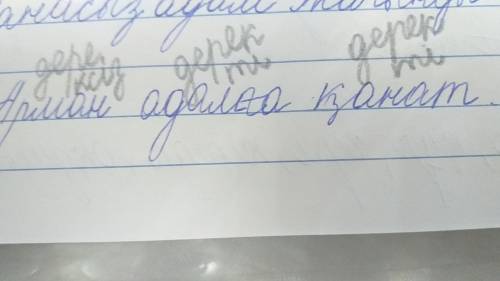 адам
дерек сіз дерек ті дерек ті
Арман адалға қанат.